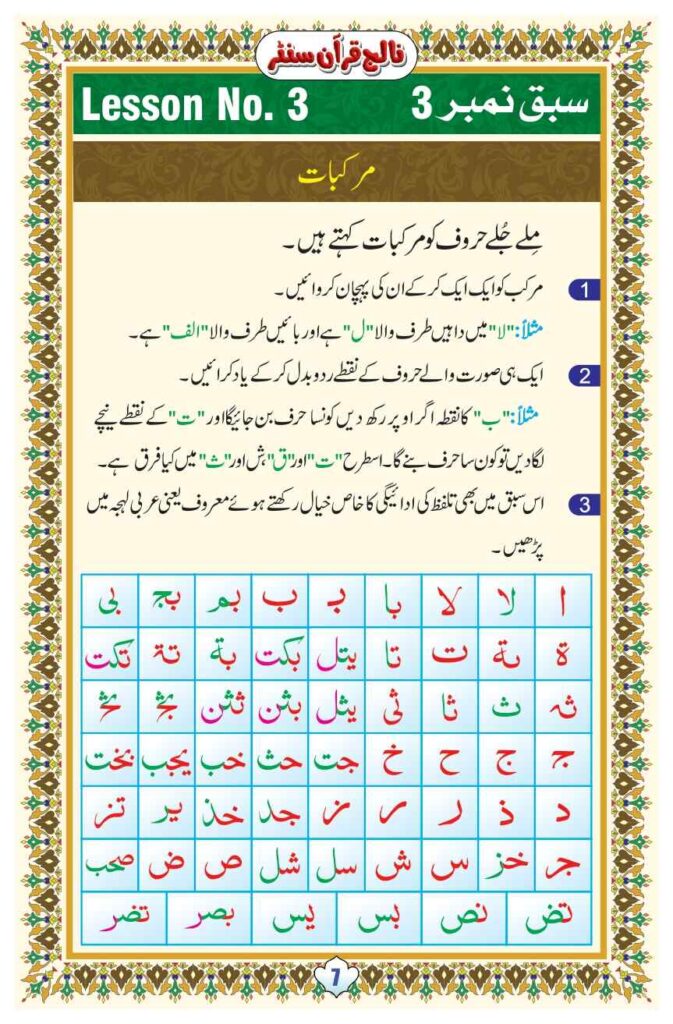 نالج قرآن سنٹر
Lesson No. 3 سبق نمبر 3
مرکبات
مِلے جُلے حروف کو مرکبات کہتے ہیں۔
1 مرکب کو ایک ایک کر کے ان کی پہچان کروائیں۔
مثلاً: "لا" میں داہیں طرف والا "ل" ہے اور بائیں طرف والا "الف" ہے۔
2 ایک ہی صورت والے حروف کے نقطے ردو بدل کر کے یاد کرائیں۔
مثلاً: "ب" کا نقطہ اگر اوپر رکھ دیں کونسا حرف بن جائیگا اور "ت" کے نقطے نیچے
لگا دیں تو کون سا حرف بنے گا۔ اسطرح "ت" اور "ق" ش اور "ث" میں کیا فرق ہے۔
3 اس سبق میں بھی تلفظ کی ادائیگی کا خاص خیال رکھتے ہوئے معروف یعنی عربی لہجہ میں
پڑھیں۔
ا لا لا با بـ ب بم بج بی
ة ىة ت تا یتل بکت بة تة تکت
ثہ ث ثا ثی یثل بثن ثثن
ج ج ح خ جت حث خب یجب بخت
د ذ ر ر ز جد خذ یر تز
جر خز س ش سل شل ص ض صحب
تض نص بس یس بصر تضر
7